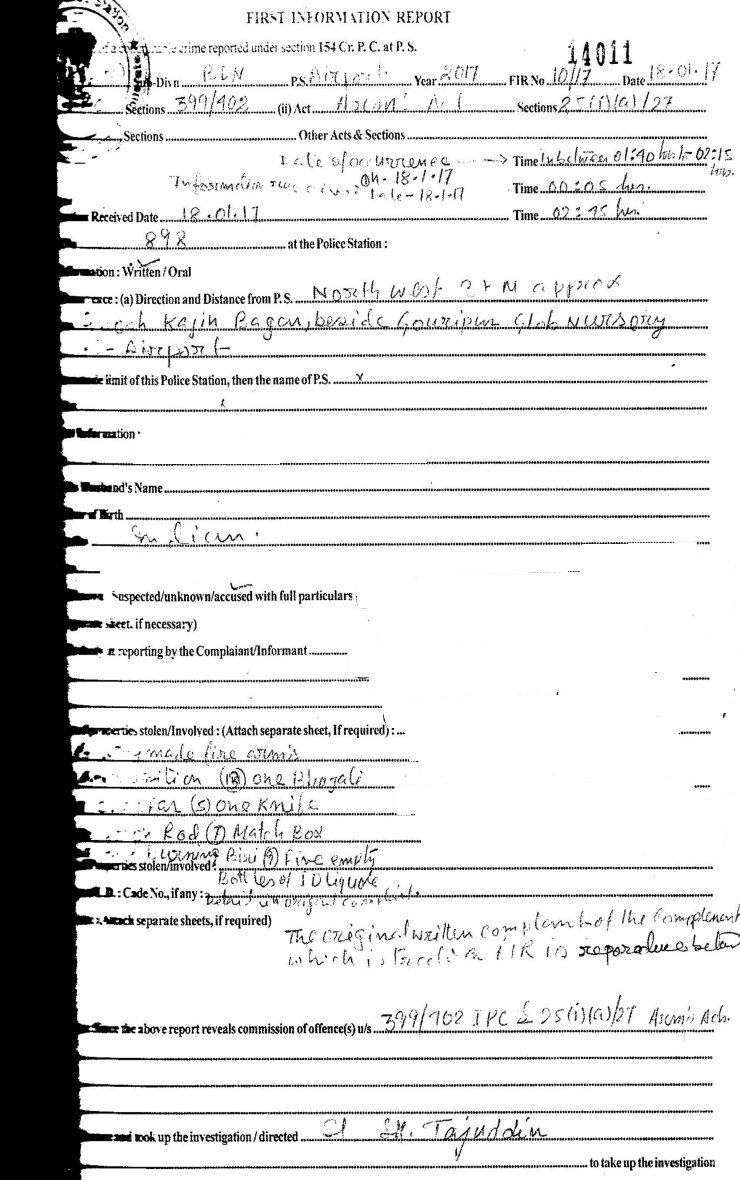 FIRST INFORMATION REPORT
crime reported under section 154 Cr. P. C. at P. S.
14011
Sub-Divn P.S. Airport Year 2017 FIR No 10/17 Date 18-01-17
Sections 399/402 (ii) Act Arms Act Sections 25(i)(a)/27
Sections Other Acts & Sections
Date of occurrence Time In between 01:40 hrs to 02:15 hrs.
on - 18-1-17
Information Date - 18-1-17 Time 00:05 hrs.
Received Date 18-01-17 Time 02:45 hrs.
898 at the Police Station :
Written / Oral
(a) Direction and Distance from P.S. North West 3 KM approx
Kajir Bagan, beside Gouripur Glob Nursory
Airport
limit of this Police Station, then the name of P.S. x
x
Information
Husband's Name
of Birth
Indian.
Suspected/unknown/accused with full particulars
sheet. if necessary)
reporting by the Complaiant/Informant
stolen/Involved : (Attach separate sheet, If required) :
made fire arms
one Bhojali
(5) one Knife
Rod (7) Match Box
Burning Biri (9) Five empty
stolen/involved :
Bottles of ID liquor
Code No., if any : Detail in original complaint
Attach separate sheets, if required)
The original written complaint of the complenent
which is treated as FIR is reproduces below
Since the above report reveals commission of offence(s) u/s 399/402 IPC & 25(i)(a)/27 Arms Act.
and took up the investigation / directed SI SK. Tajuddin
to take up the investigation